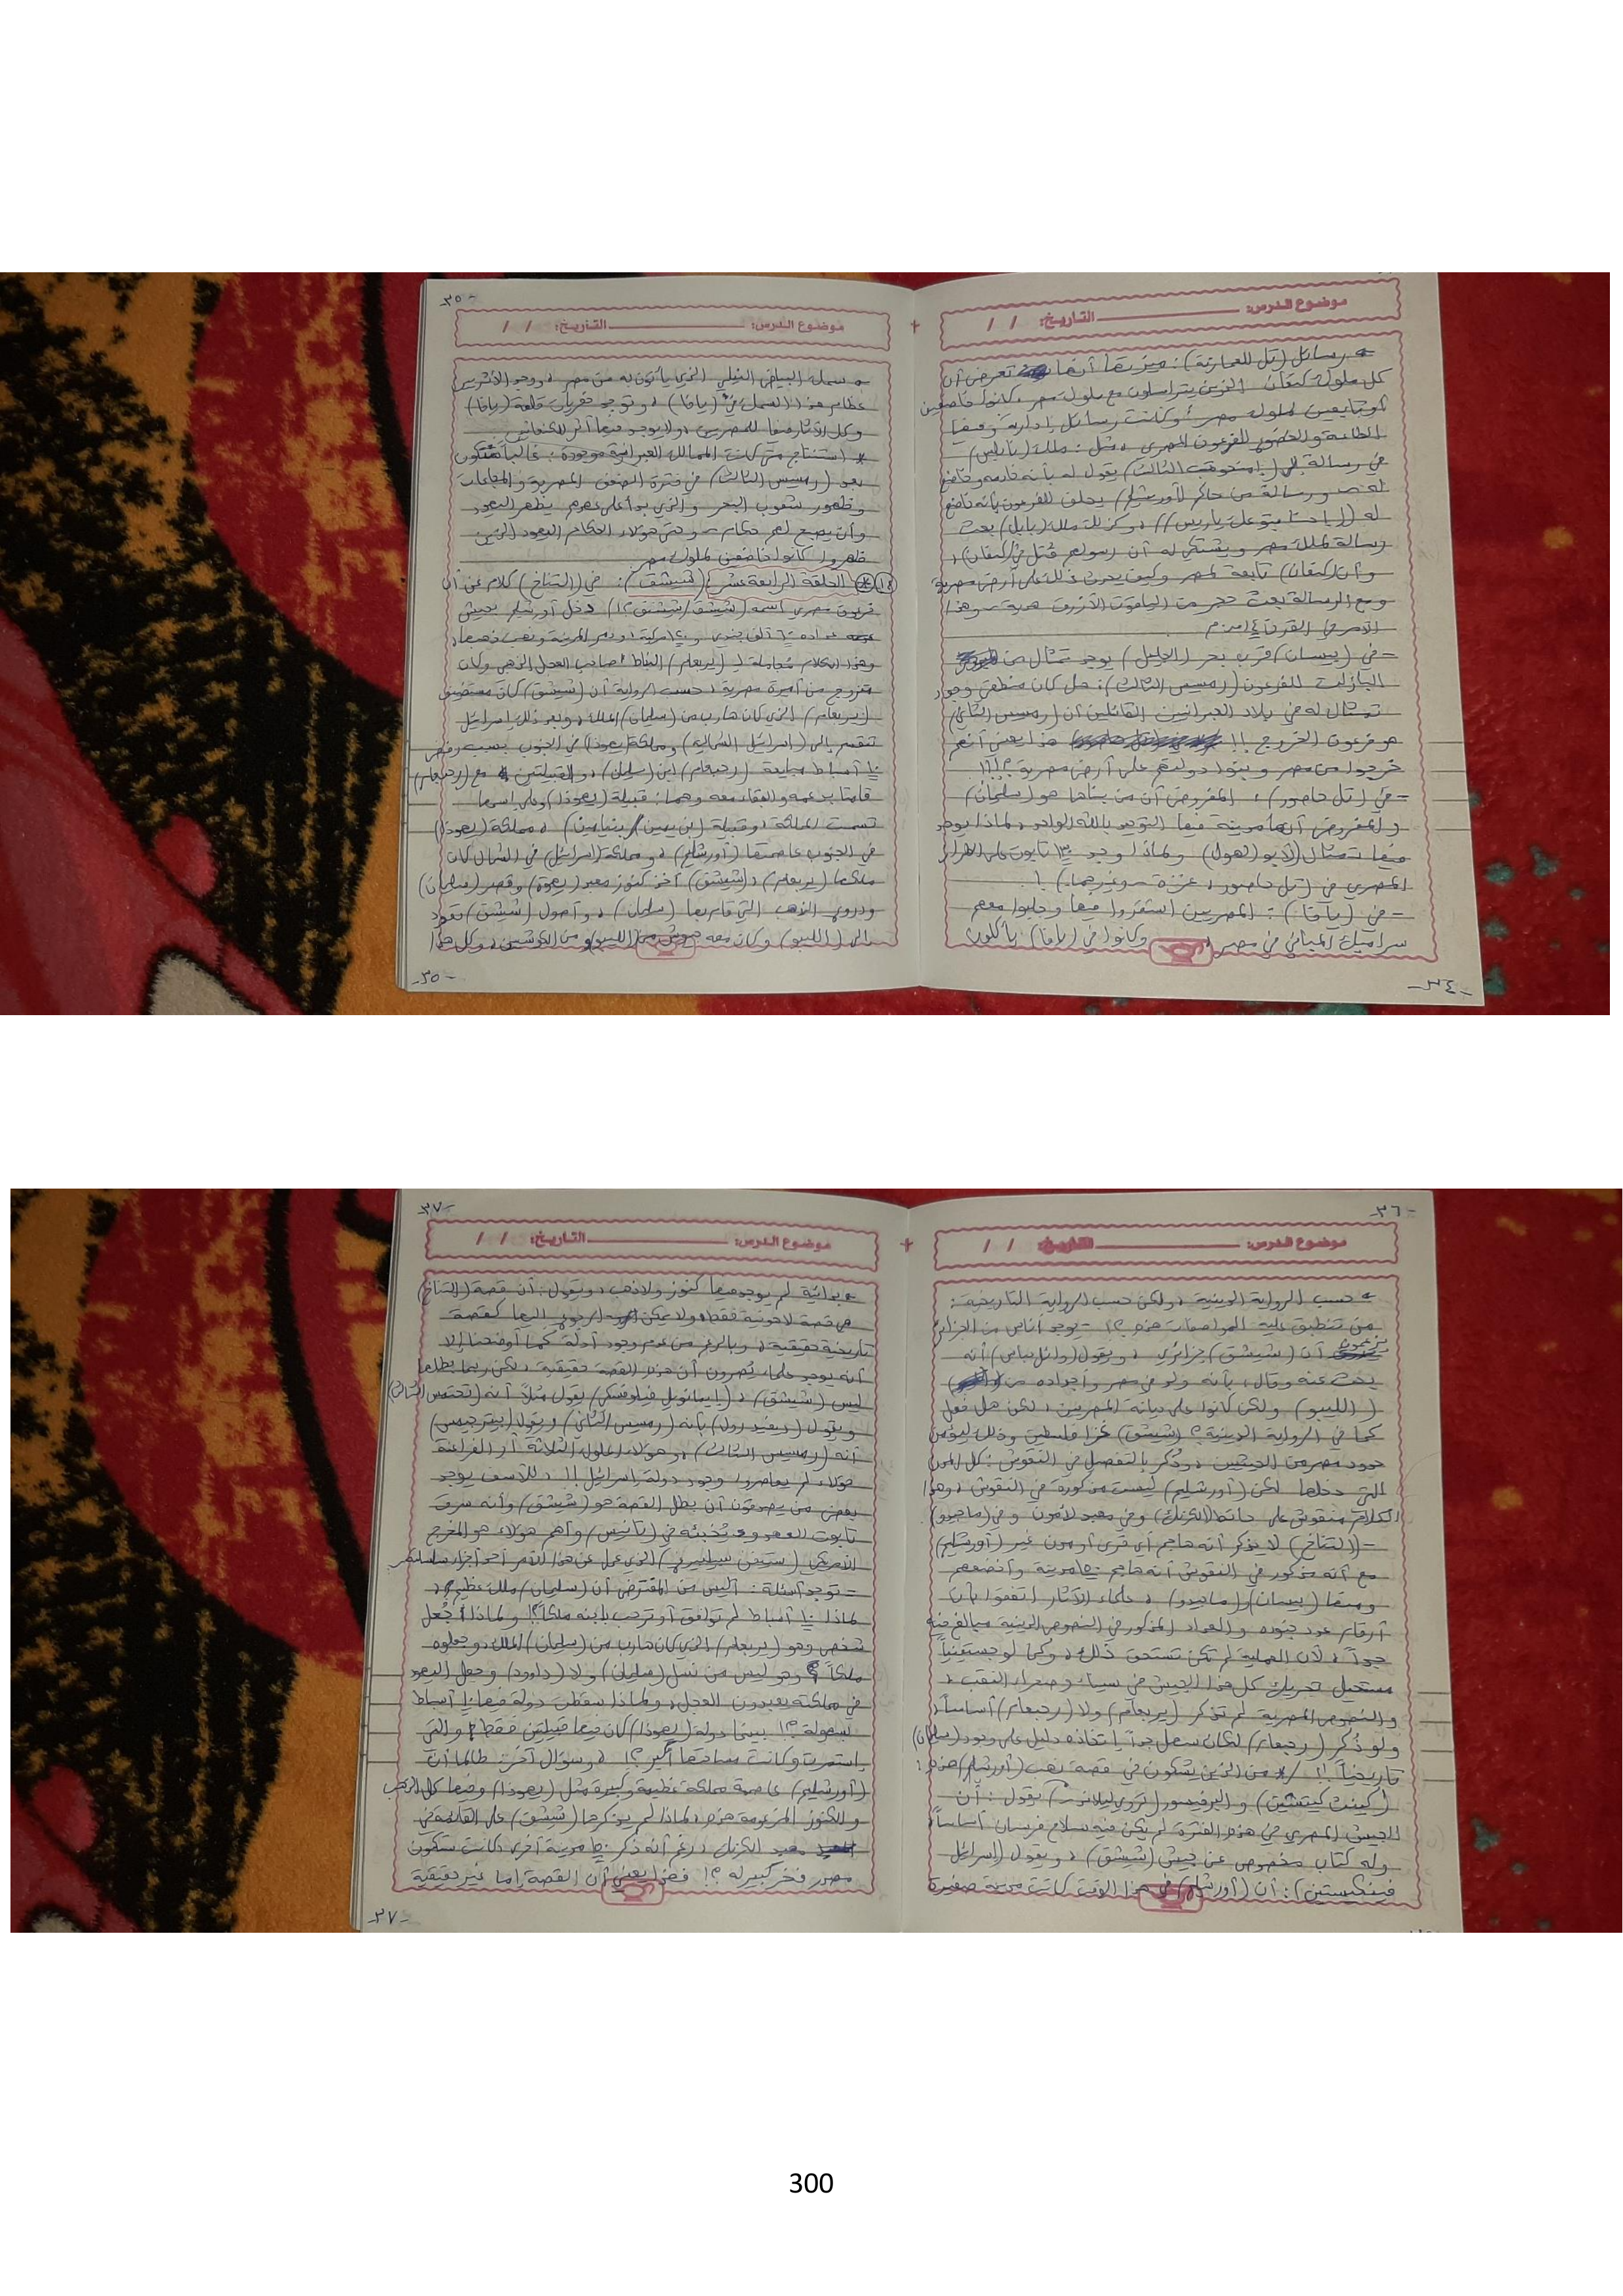 موضوع الدرس: التاريخ: / /
← رسائل (تل العمارنة): ميزتها أنها تعرض أن
كل ملوك كنعان الذين يتراسلون مع ملوك مصر، كانوا خاضعين
أو تابعين لملوك مصر، وكانت رسائل إدارية وفيها
الطاعة والخضوع للفرعون المصري، مثل: ملك (نابلس)
في رسالة إلى (امنحوتب الثالث) يقول له بأنه خادمه وخاضع
له - ورسالة من حاكم (أورشليم) يحلف للفرعون بأنه خاضع
له ، وكذلك ملك (بابل) بعث
رسالة لملك مصر ويشتكي له أن رسولهم قُتل في (كنعان)،
وأن (كنعان) تابعة لمصر وكيف يحدث ذلك على أرض مصرية
ومع الرسالة بعث حجر من الياقوت الأزرق هدية - وهذا
الأمر في القرن ١٤ ق.م
- في (بيسان) قرب بحر (الجليل) يوجد تمثال من
البازلت للفرعون (رمسيس الثالث): هل كان منطقي وجود
تمثال له في بلاد العبرانيين القائلين أن (رمسيس الثاني)
هو فرعون الخروج !! هذا يعني أنهم
خرجوا من مصر وبنوا دولتهم على أرض مصرية ؟!!
- في (تل حاصور): المفروض أن من بناها هو (سليمان)
والمفروض أنها مدينة فيها التوحيد بالله الواحد، لماذا يوجد
فيها تمثال (لأبو الهول) ولماذا وجد ١٣ تابوت على الطراز
المصري في (تل حاصور، غزة - وغيرهما) !.
- في (يافا): المصريين استقروا فيها وجلبوا معهم
سراميك المباني في مصر، وكانوا في (يافا) يأكلون
-٣٤-
-٣٥-
موضوع الدرس: التاريخ: / /
← سمك البياض النيلي الذي يأتون به من مصر، ووجد الأثريين
عظام هذا السمك في (يافا)، وتوجد حفريات قلعة (يافا)
وكل الآثار فيها للمصريين، ولا يوجد فيها أثر للكنعانيين
* استنتاج متى كانت الممالك العبرانية موجودة: غالباً ستكون
بعد (رمسيس الثالث) في فترة الضعف المصرية والمجاعات
وظهور شعوب البحر والذي بدأ على يدهم يظهر اليهود
وأن يصبح لهم حكام - وحتى هؤلاء الحكام اليهود الذين
ظهروا كانوا خاضعين لملوك مصر
١٤ * الحلقة الرابعة عشر (شيشق): في (التناخ) كلام عن أن
فرعون مصري اسمه (شيشق/ششنق ؟) دخل أورشليم بجيش
عداده ٦٠ ألف جندي و مركبة، ودمر المدينة ونهب ذهبها،
وهذا الكلام مجاملة لـ (يربعام) النباط صاحب العجل الذهبي وكان
متزوج من أميرة مصرية، حسب الرواية أن (شيشق) كان مستضيف
(يربعام) الذي كان هارب من (سليمان) الملك، وبعد ذلك إسرائيل
تنقسم إلى (إسرائيل الشمالية) ومملكة (يهوذا) في الجنوب بسبب رفض
١٠ أسباط مبايعة (رحبعام) ابن (سليمان)، والقبيلتين مع (رحبعام)
قامتا بدعمه والبقاء معه وهما: قبيلة (يهوذا) وعلى اسمها
تسمت المملكة، وقبيلة (ابن يمين/ بنيامين)، مملكة (يهوذا)
في الجنوب عاصمتها (أورشليم)، ومملكة (إسرائيل) في الشمال كان
ملكها (يربعام)، (شيشق) أخذ كنوز معبد (يهوه) وقصر (سليمان)
ودروع الذهب التي قام بها (سليمان)، وأصول (شيشق) تعود
إلى (الليبو) وكان معه جيوش من (الليبو) ومن الكوشيين، وكل هذا
-٣٥-
-٣٦-
موضوع الدرس: التاريخ: / /
← حسب الرواية الدينية، ولكن حسب الرواية التاريخية:
من تنطبق عليه المواصفات هذه ؟! - يوجد أناس من الجزائر
يزعمون أن (شيشق) جزائري، ويقول (وائل عباس) أنه
بحث عنه وقال: بأنه ولد في مصر وأجداده من
(الليبو) ولكن كانوا على ديانة المصريين، لكن هل فعل
كما في الرواية الدينية؟ (شيشق) غزا فلسطين وذلك ليؤمن
حدود مصر من الجهتين، وذُكر بالتفصيل في النقوش: كل المدن
التي دخلها لكن (أورشليم) ليست مذكورة في النقوش، وهذا
الكلام منقوش على حائط (الكرنك) وفي معبد لآمون وفي (ماجدو)
- (التناخ) لا يذكر أنه هاجم أي قرى أو مدن غير (أورشليم)
مع أنه مذكور في النقوش أنه هاجم ١٥٠ مدينة وأخضعهم
ومنها (بيسان) و(ماجدو)، علماء الآثار اتفقوا بأن
أرقام عدد جنوده والعتاد المذكور في النصوص الدينية مبالغ فيه
جداً، لأن العملية لم تكن تستحق ذلك، وكما لوجستيتياً
مستحيل تحريك كل هذا الجيش في سيناء وصحراء النقب،
والنصوص المصرية لم تذكر (يربعام) ولا (رحبعام) أساساً،
ولو ذُكر (رحبعام) لكان سهل جداً اتخاذه دليل على وجود (سليمان)
تاريخياً !! / * من الذين يشككون في قصة نهب (أورشليم) هذه:
(كينث كيتشن) والبروفيسور يقول: أن
الجيش المصري في هذه الفترة لم يكن فيه سلاح فرسان أساساً
وله كتاب مخصوص عن جيش (شيشق)، ويقول (إسرائيل
فينكلستين): أن (أورشليم) في هذا الوقت كانت مدينة صغيرة
-٣٧-
موضوع الدرس: التاريخ: / /
← بدائية لم يوجد فيها كنوز ولا ذهب، ويقول: أن قصة (التناخ)
هي قصة لاهوتية فقط، ولا يمكن الرجوع إليها كقصة
تاريخية حقيقية، وبالرغم من عدم وجود أدلة كما أوضحنا إلا
أنه يوجد علماء يُصرون أن هذه القصة حقيقية، لكن ربما بطلها
ليس (شيشق)، (إيمانويل فيلوفسكي) يقول مثلاً أنه (تحتمس الثالث)
ويقول (ديفيد رول) بأنه (رمسيس الثاني) ويقول (بيتر جيمس)
أنه (رمسيس الثالث)، وهؤلاء الملوك الثلاثة أو الفراعنة
هؤلاء لم يعاصروا وجود دولة إسرائيل !!، للأسف يوجد
بعض من يصدقون أن بطل القصة هو (شيشق) وأنه سرق
تابوت العهد وخبئه في (تانيس) وأهم هؤلاء هو المخرج
الأمريكي (ستيفن سبيلبيرغ) الذي عمل عن هذا الأمر أحد أجزاء سلسلة
= توجد أسئلة: أليس من المفترض أن (سليمان) ملك عظيم،
لماذا ١٠ أسباط لم توافق أو ترحب بابنه ملكاً؟! ولماذا جُعل
شخص وهو (يربعام) الذي كان هارب من (سليمان) الملك، وجعلوه
ملكاً وهو ليس من نسل (سليمان) ولا (داوود) وجعل اليهود
في مملكته يعبدون العجل، ولماذا سقطت دولة فيها ١٠ أسباط
بسهولة ؟! بينما دولة (يهوذا) كان فيها قبيلتين فقط والتي
استمرت وكانت أكبر ؟!، وسؤال آخر: طالما أن
(أورشليم) عاصمة مملكة عظيمة وكبيرة مثل (يهوذا) وفيها كل الذهب
والكنوز المزعومة هذه، لماذا لم يذكرها (شيشق) على القائمة في
معبد الكرنك، رغم أنه ذكر ١٥٠ مدينة أخرى، كانت ستكون
مصدر فخر كبير له ؟! فهذا يعني أن القصة إما غير حقيقية
-٣٧-
300